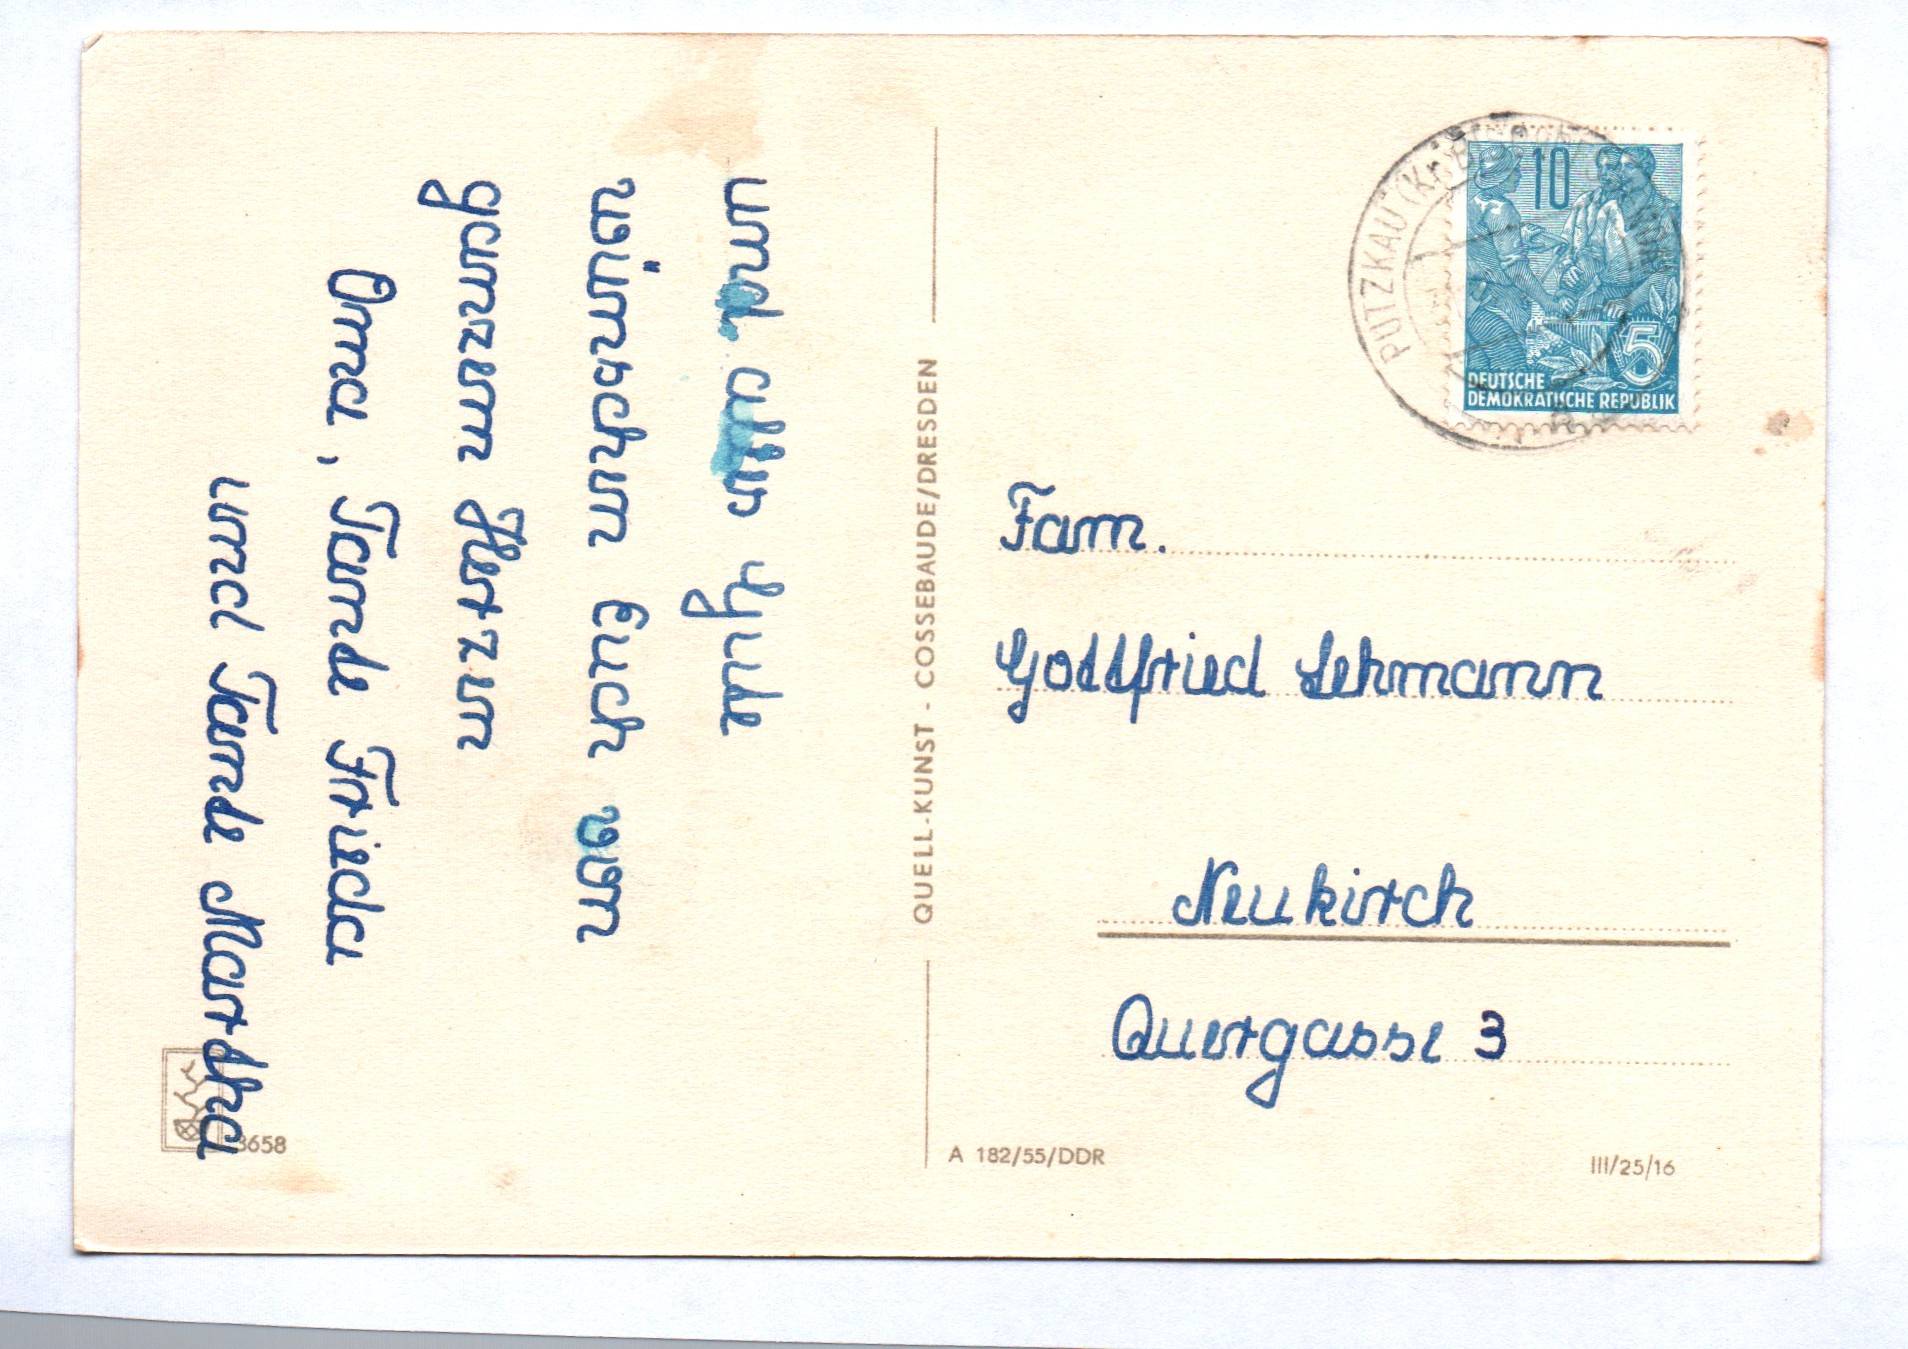 und alles Gute
wünschen Euch von
ganzem Herzen
Oma, Tante Frieda
und Tante Martha
3658
QUELL-KUNST - COSSEBAUDE/DRESDEN
PUTZKAU (Kr.
10
5
DEUTSCHE
DEMOKRATISCHE REPUBLIK
Fam.
Gottfried Lehmann
Neukirch
Quergasse 3
A 182/55/DDR
III/25/16